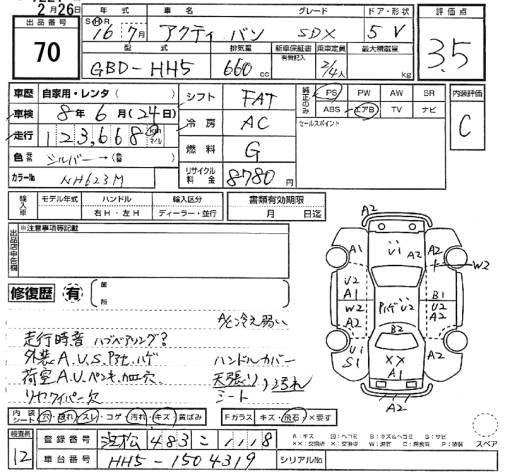 2月26日
出品番号
70
年式
車名
グレード
ドア・形状
評価点
SH 16年7月
アクティ バン
SDX
5V
3.5
型式
排気量
新車保証書
有無記入
乗車定員
最大積載量
GBD-HH5
660cc
2/4人
kg
車歴
自家用・レンタ( )
シフト
FAT
純正のみ
PS PW AW SR
ABS エアB TV ナビ
内装評価
C
車検
8年6月(24日)
冷房
AC
セールスポイント
走行
123,668
km
マイル
燃料
G
色
シルバー→(替)
カラーNo.
NH623M
リサイクル料金
8780円
輸入車
モデル年式
ハンドル
右H・左H
輸入区分
ディーラー・並行
書類有効期限
月 日迄
出品店申告欄
※注意事項等記載
修復歴
有
箇所
A/C冷え弱い
走行時音 ハブベアリング?
外装A.U.S.アセ.ハゲ
ハンドルカバー
荷室A.U.ペンキ.加工穴
天張り
シート
汚れ
リヤワイパー欠
A2
A1
U1
A2
A2
W2
U2
A1
W2
A2
Pハゲ U2
B1
U2
A2
B2
U1
S1
XX
A1
A2
A2
内装シート
穴・切れ・スレ・コゲ・汚れ・キズ・黄ばみ
Fガラス
キズ・飛石・×要す
スペア
検査員
12
登録番号
浜松 483 こ 1118
車台番号
HH5-1504319
シリアルNo.